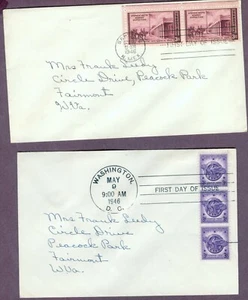 FIRST DAY OF ISSUE
Mrs Frank Leedy
Circle Drive, Peacock Park
Fairmont
W.Va.
WASHINGTON
MAY
9
9:00 AM
1946
D. C.
FIRST DAY OF ISSUE
Mrs Frank Leedy
Circle Drive
Peacock Park
Fairmont
W.Va.